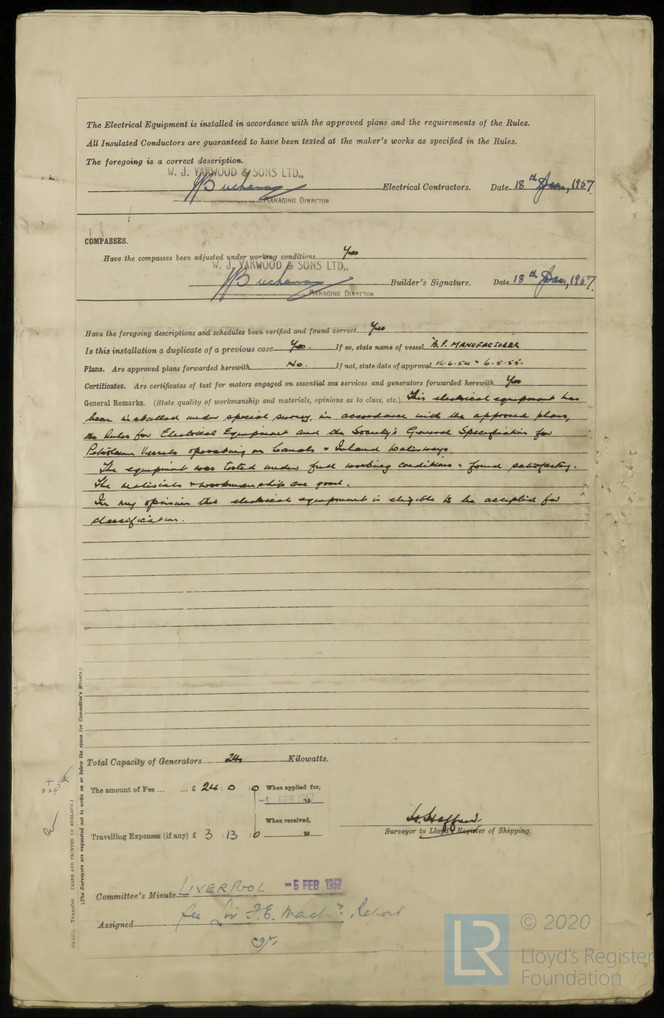 The Electrical Equipment is installed in accordance with the approved plans and the requirements of the Rules.
All Insulated Conductors are guaranteed to have been tested at the maker's works as specified in the Rules.
The foregoing is a correct description.
W. J. YARWOOD & SONS LTD.,
Electrical Contractors. Date 18th Jan, 1957.
MANAGING DIRECTOR
COMPASSES.
Have the compasses been adjusted under working conditions Yes
W. J. YARWOOD & SONS LTD.,
Builder's Signature. Date 18th Jan, 1957.
MANAGING DIRECTOR
Have the foregoing descriptions and schedules been verified and found correct Yes
Is this installation a duplicate of a previous case Yes. If so, state name of vessel B.P. MANUFACTURER
Plans. Are approved plans forwarded herewith No. If not, state date of approval 16.6.54 & 6.5.55.
Certificates. Are certificates of test for motors engaged on essential sea services and generators forwarded herewith Yes
General Remarks. (State quality of workmanship and materials, opinions as to class, etc.) This electrical equipment has
been installed under special survey, in accordance with the approved plans,
the Rules for Electrical Equipment and the Society's General Specification for
Petroleum Vessels operating on Canals & Inland Waterways.
The equipment was tested under full working conditions & found satisfactory.
The materials & workmanship are good.
In my opinion this electrical equipment is eligible to be accepted for
classification.
Total Capacity of Generators 24 Kilowatts.
The amount of Fee ... ... £ 24 : 0 : 0 When applied for,
-1 FEB 1957 19
When received,
Travelling Expenses (if any) £ 3 : 13 : 0 19
Surveyor to Lloyd's Register of Shipping.
Committee's Minute LIVERPOOL -6 FEB 1957
Assigned See Liv F.E. Machy. Report
(MADE AND PRINTED IN ENGLAND.)
(The Surveyors are requested not to write on or below the space for Committee's Minute.)
© 2020
LR
Lloyd's Register
Foundation